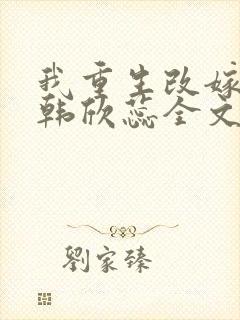 我重生改嫁
韩欣蕊全文
劉家臻